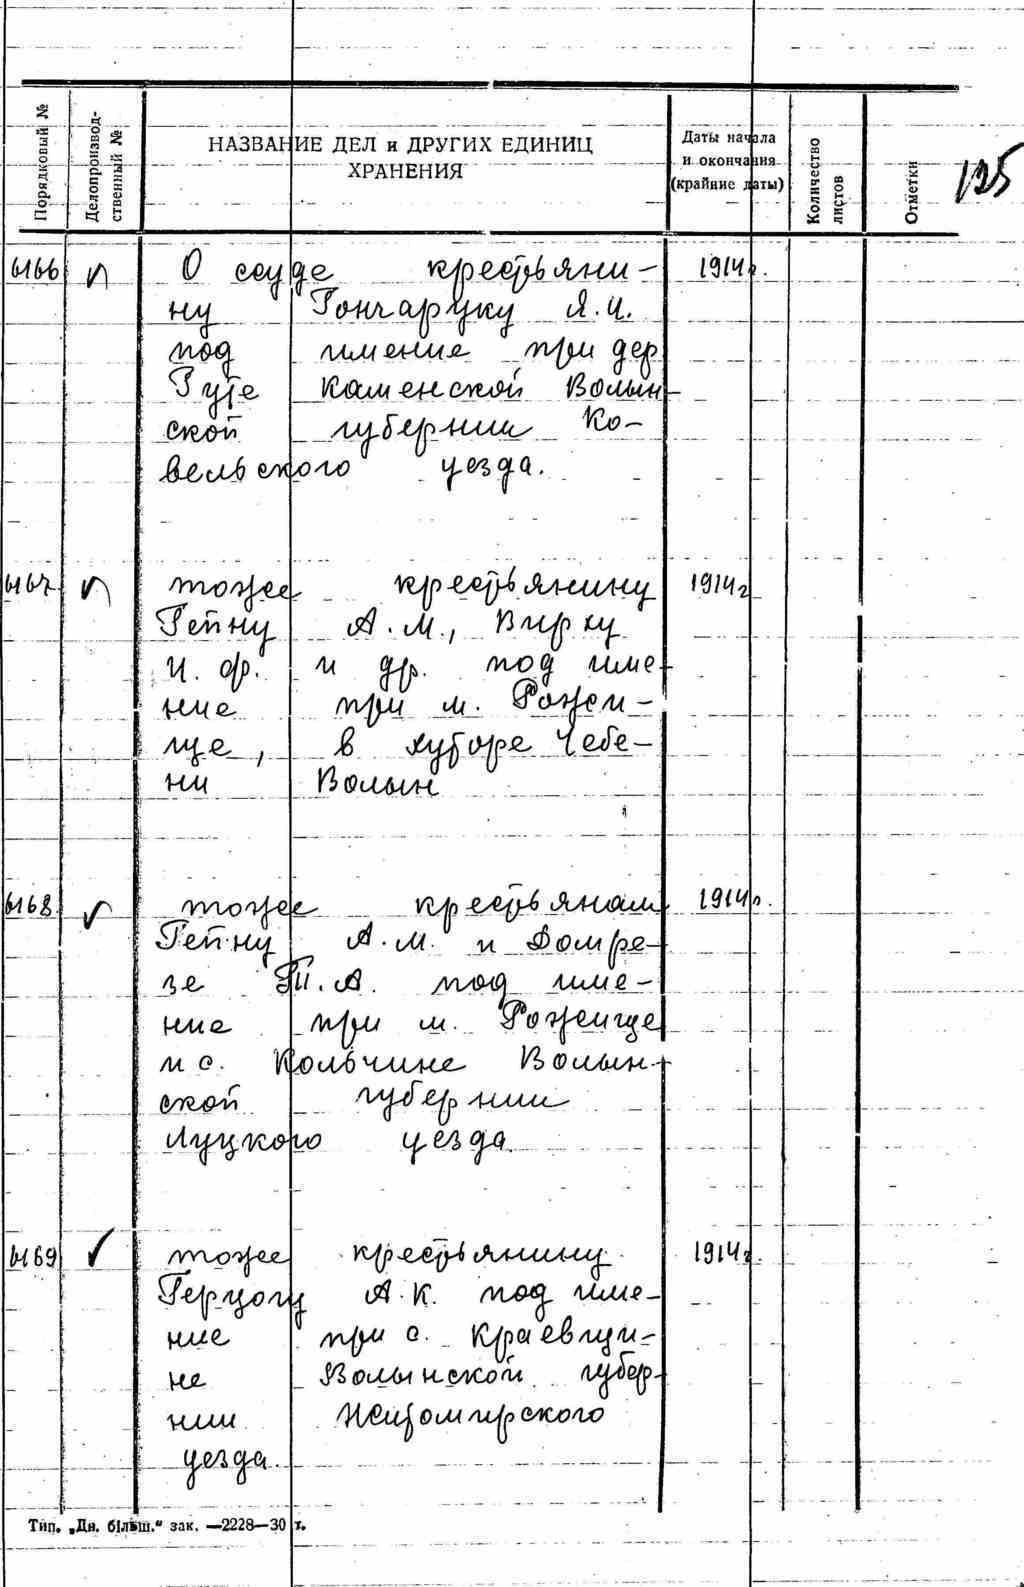 Порядковый №
Делопроизвод-
ственный №
НАЗВАНИЕ ДЕЛ и ДРУГИХ ЕДИНИЦ
ХРАНЕНИЯ
Даты начала
и окончания
(крайние даты)
Количество
листов
Отметки
125
6166 О ссуде крестьяни- 1914г.
ну Гончаруку Я.И.
под имение при дер
Гуте Каменской Волын-
ской губернии Ко-
вельского уезда.
6167 тоже крестьянину 1914г
Гейну А.М., Вирку
И.Ф. и др. под име-
ние при м. Рожи-
ще, в хуторе Чебе-
ни Волын
6168 тоже крестьянам 1914г.
Гейну А.М. и Домре-
зе П.А. под име-
ние при м. Рожище
и с. Кольчине Волын-
ской губернии
Луцкого уезда.
6169 тоже крестьянину 1914г.
Герцогу А.К. под име-
ние при с. Краевщи-
не Волынской губер-
нии Житомирского
уезда.
Тип. „Дн. більш.“ зак. —2228—30 т.